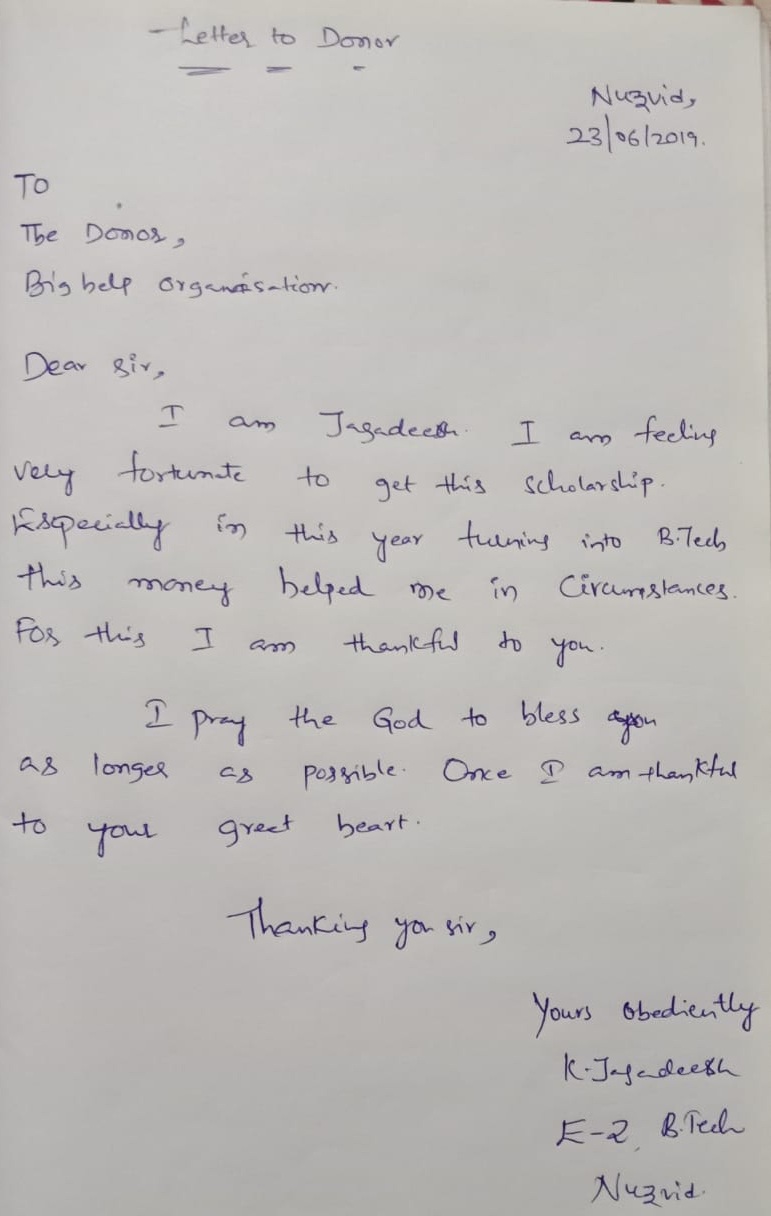 Letter to Donor
Nuzvid,
23/06/2019.
To
The Donor,
Big help organisation.
Dear sir,
I am Jagadeesh. I am feeling
very fortunate to get this scholarship.
Especially in this year turning into B.Tech
this money helped me in Circumstances.
For this I am thankful to you.
I pray the God to bless you
as longer as possible. Once I am thankful
to your great heart.
Thanking you sir,
Yours obediently
K. Jagadeesh
E-2, B.Tech
Nuzvid.